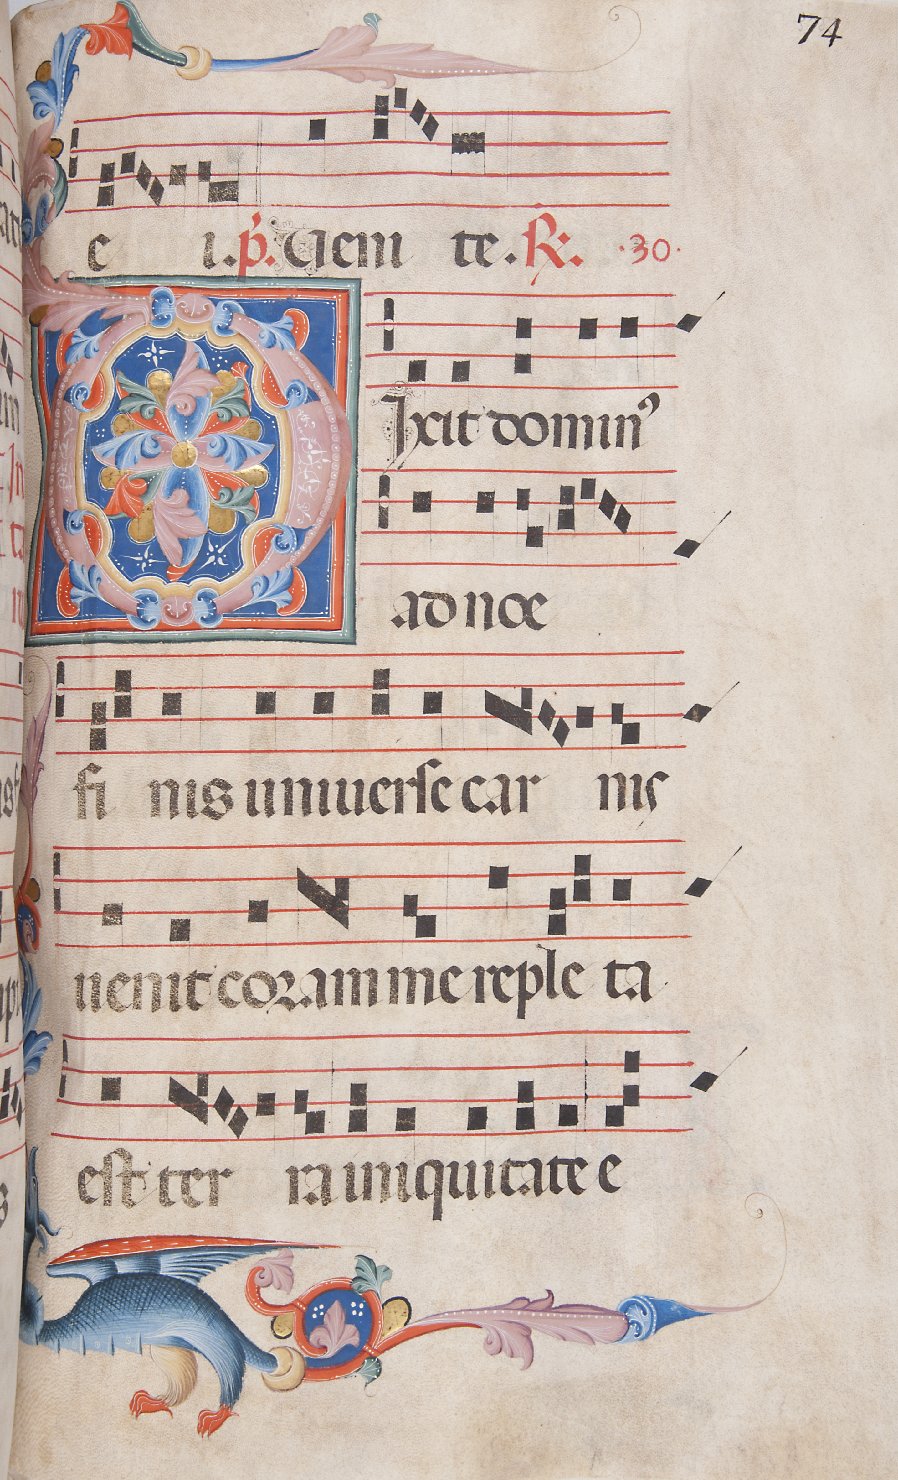 74
e i. ꝓ. Uem te. R. ·30·
Dixit domin⁹
ad noe
fi nis uniuerse car nis
uenit coram me reple ta
est ter ra iniquitate e